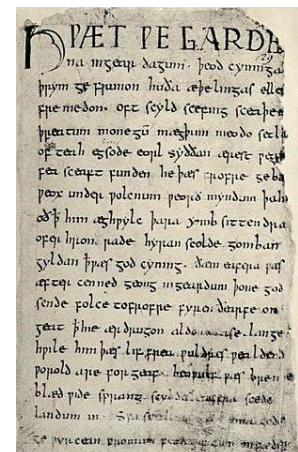 HǷÆT ǷE GARDE
na ingear dagum. þeod cyninga
þrym ge frunon huða æþelingas elle
fremedon. oft scyld scefing sceaþe
þreatum monegū mægþum meodo setla
of teah egsode eorl syððan ærest ƿear
fea sceaft funden he þæs frofre geba
ƿeox under ƿolcnum ƿeorð myndum þah
oð ꝥ him æghƿylc þara ymb sittendra
ofer hron rade hyran scolde gomban
gyldan ꝥ ƿæs god cyning. ðæm eafera ƿæs
æfter cenned geong ingeardum þone god
sende folce tofrofre fyren ðearfe on
geat ꝥ hie ær drugon aldor ase. lange
hƿile him þæs lif frea ƿuldres ƿealdend
ƿorold are for geaf. beoƿulf ƿæs breme
blæd ƿide sprang scyldes eafera scede
landum in. Sƿa sceal uma gode
ge ƿyrcean fromum feoh giftum on fæder